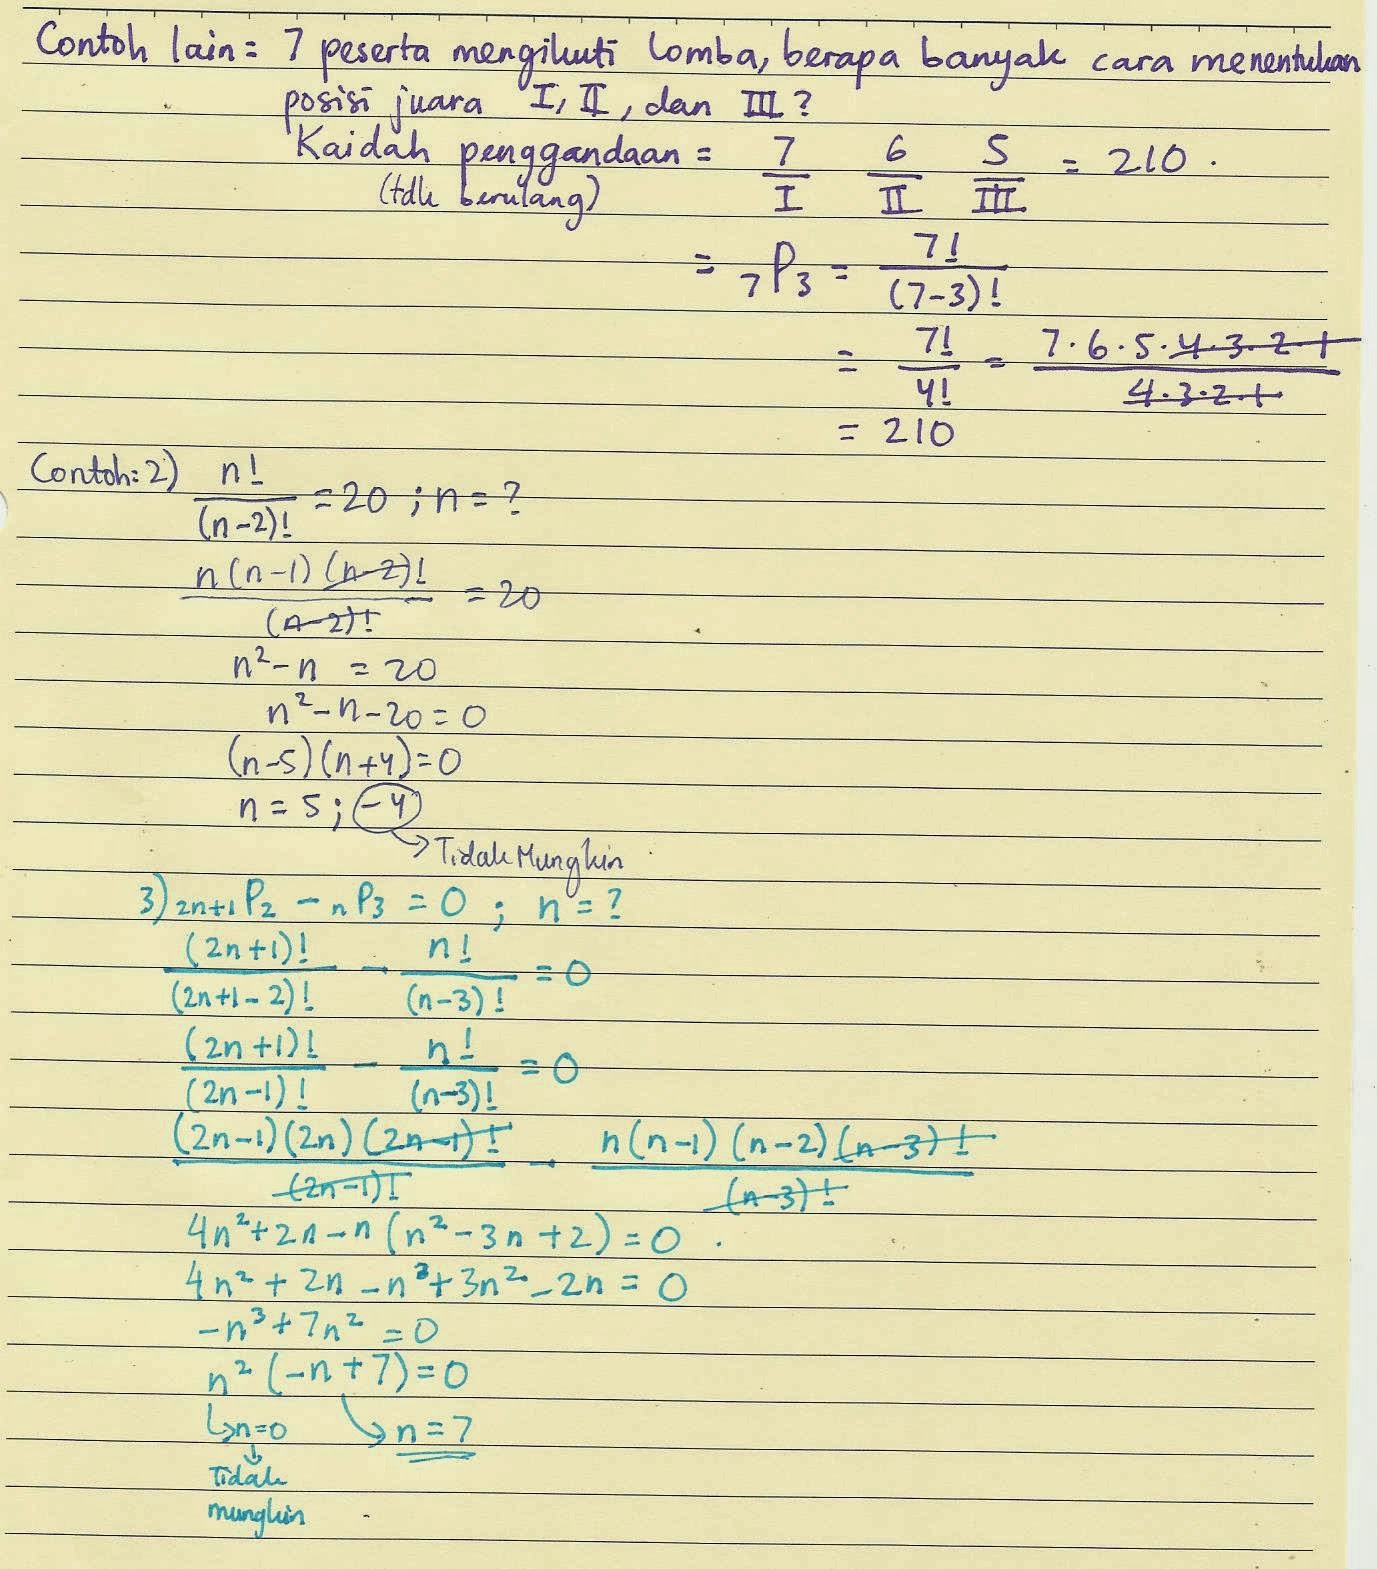 Contoh lain = 7 peserta mengikuti lomba, berapa banyak cara menentukan
posisi juara I, II, dan III?
Kaidah penggandaan = 7/I 6/II 5/III = 210.
(tdk berulang)
= ₇P₃ = 7!/(7-3)!
= 7!/4! = 7·6·5·4·3·2·1/4·3·2·1
= 210
Contoh: 2) n!/(n-2)! = 20 ; n = ?
n(n-1)(n-2)!/(n-2)! = 20
n² - n = 20
n² - n - 20 = 0
(n-5)(n+4) = 0
n = 5 ; -4
→ Tidak Mungkin
3) ₂ₙ₊₁P₂ - ₙP₃ = 0 ; n = ?
(2n+1)!/(2n+1-2)! - n!/(n-3)! = 0
(2n+1)!/(2n-1)! - n!/(n-3)! = 0
(2n-1)(2n)(2n-1)!/(2n-1)! - n(n-1)(n-2)(n-3)!/(n-3)!
4n² + 2n - n(n² - 3n + 2) = 0.
4n² + 2n - n³ + 3n² - 2n = 0
-n³ + 7n² = 0
n²(-n + 7) = 0
↳ n = 0 ↘ n = 7
↓
Tidak
mungkin